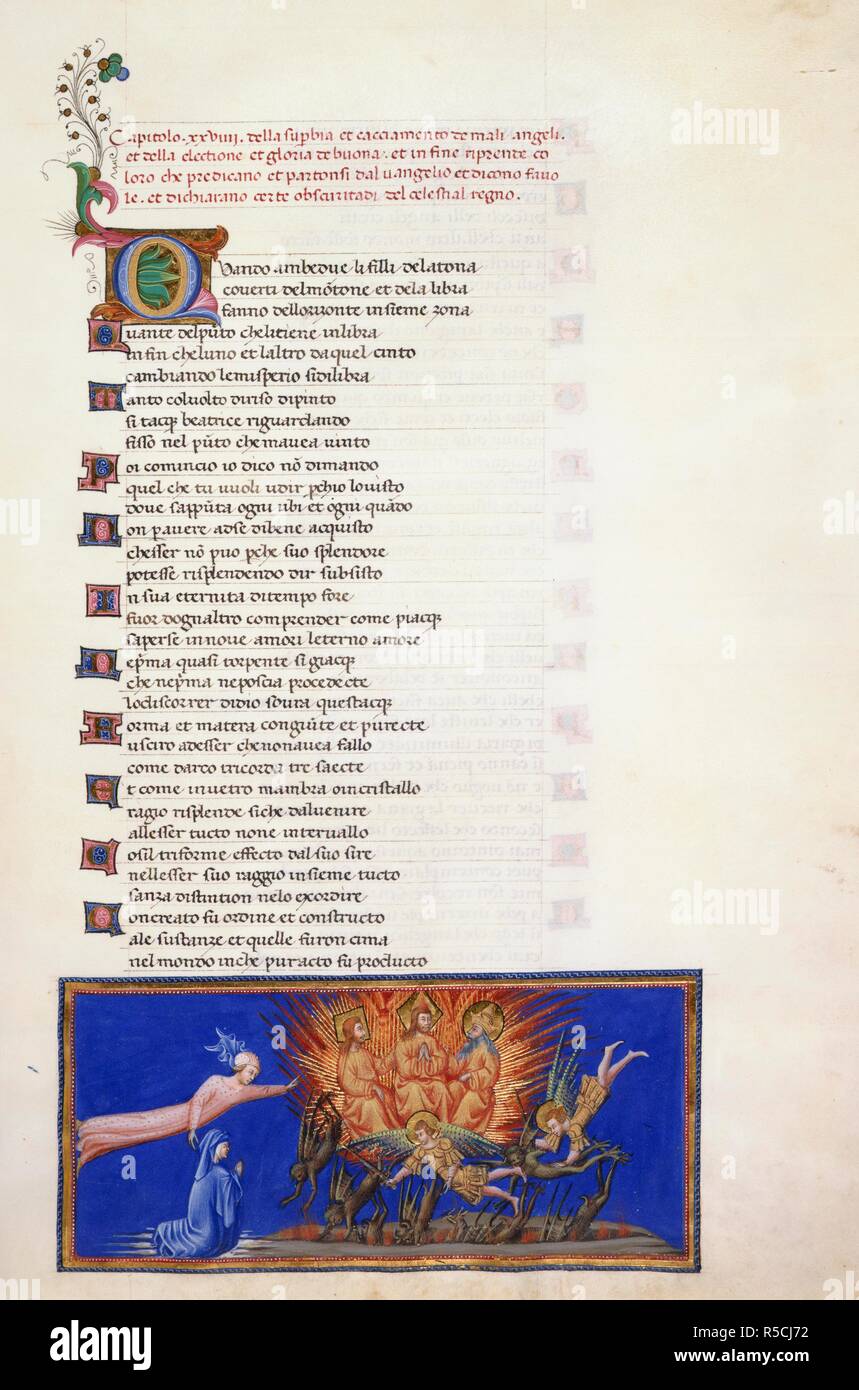 Capitolo .xxviiii. della supbia et cacciamento de mali angeli.
et della electione et gloria de buona. et in fine riprente co
loro che predicano et partonsi dal uangelio et dicono fauo
le. et dichiarano certe obscuritadi del celestial regno.
Quando ambedue li filli delatona
couerti delmōtone et de la libra
fanno dellorizonte insieme zona
Quante delpūto chelitiene inlibra
in fin cheluno et laltro da quel cinto
cambiando lemisperio sidilibra
Tanto coluolto diriso dipinto
si tacq beatrice riguardando
fisso nel pūto chemauea uinto
Poi comincio io dico nō dimando
quel che tu uuoli udir pchio louisto
doue sappūta ogni ubi et ogni quādo
Non p auere adse dibene acquisto
chesser nō puo pche suo splendore
potesse risplendendo dir subsisto
In sua eternita ditempo fore
fuor dognaltro comprender come piacq
saperse in noue amori leterno amore
Ne pma quasi torpente si giacq
che ne pma ne poscia procedecte
lo discorrer didio soura questacq
Forma et matera congiūte et purecte
usciro adesser chenonauea fallo
come darco tricorda tre saecte
Et come inuetro inambra o incristallo
ragio risplende siche daluenire
allesser tucto none interuallo
Cosil triforme effecto dal suo sire
nellesser suo raggio insieme tucto
sanza distintion nelo exordire
Concreato fu ordine et constructo
ale sustanze et quelle furon cima
nel mondo inche puracto fu producto
alamy
alamy
Image ID: R5CJ72
www.alamy.com